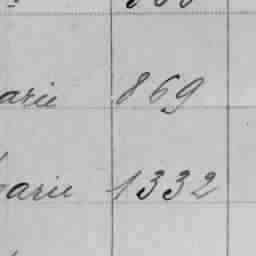 arie 869
arie 1332